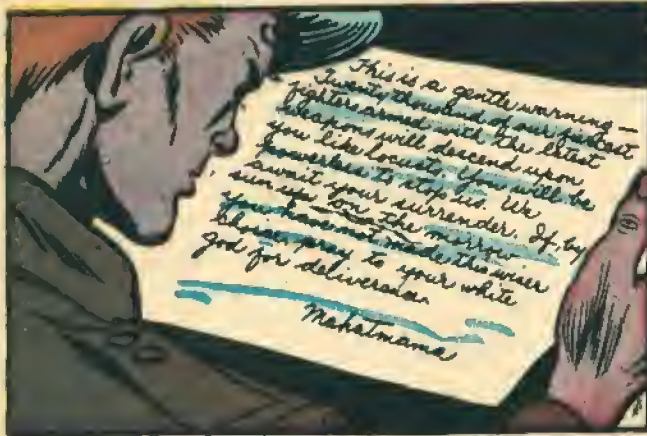 This is a gentle warning —
Twenty thousand of our finest
fighters armed with the latest
weapons will descend upon
you like locusts. You will be
powerless to stop us. We
await your surrender. If by
sun up on the morrow
you have not made this wiser
choice, pray to your white
god for deliverance.
Mahatmama